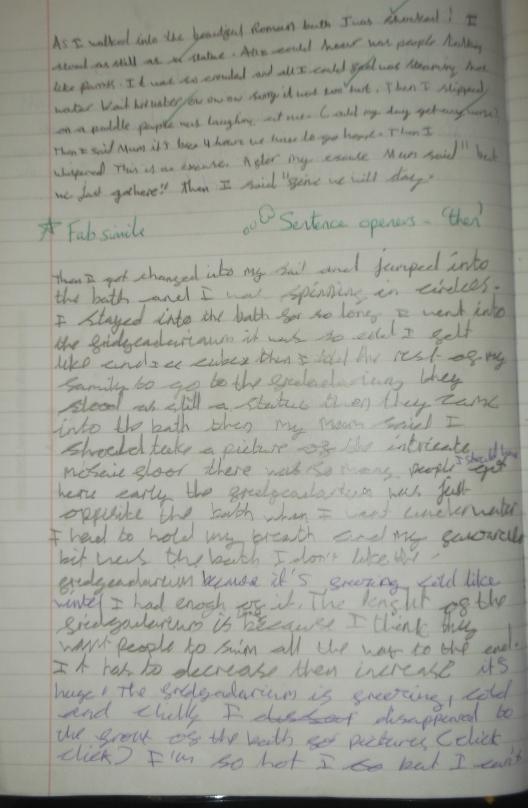 As I walked into the beautiful Roman bath I was shocked! I
stood as still as a statue. All I could hear was people
like parrots. It was so crouded and all I could feel was steaming hot
water. ow ow ow sorry it was Then I slipped
on a puddle people was laughing at me could my day get any worse?
Then I said Mum it's been 4 hours we have to go home. Then I
whispered This is an excuse. After my excuse Mum said" but
we Just gothere!" Then I said "fine we will stay.
Fab simile Sentence openers - 'then'
Then I got changed into my suit and jumped into
the bath and I was spinning in circles.
I stayed into the bath for so long I went into
the fridgeadarium it was so cold I felt
like cubes then I told the rest of my
family to go to the they
stood as still a statue then they came
into the bath then my Mum said I
should take a picture of the intricate
mosaic floor there was so many people I should
here early the fridgeadarium was just
opposite the bath when I went underwater
I had to hold my breath and my favourite
bit was the bath I don't like the
fridgeadarium because it's freezing cold like
winter I had enogh of it. The lenght of the
fridgeadarium is because I think they
want people to swim all the way to the end.
It has to decrease then increase it's
huge! The fridgeadarium is freezing, cold
and chilly I disappeared to
the front of the bath for pictures (click
click) I'm so hot I go but I can't